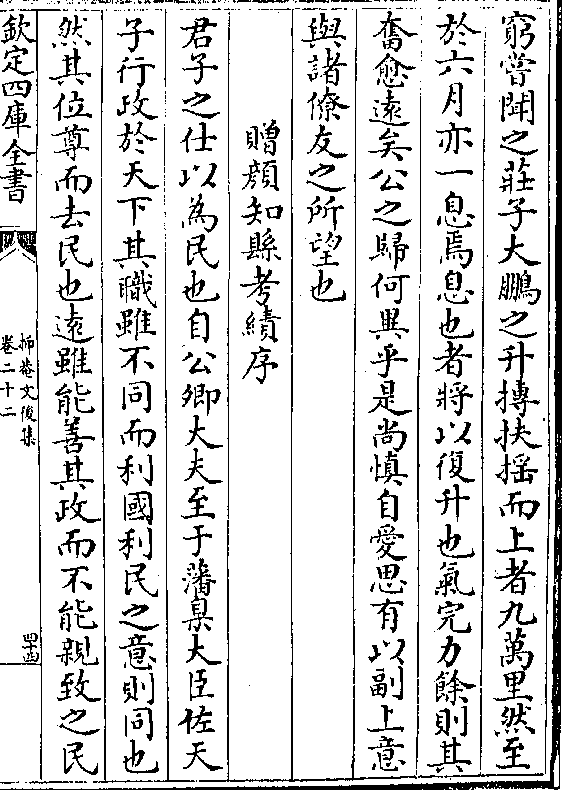 窮嘗聞之莊子大鵬之升摶扶摇而上者九萬里然至
於六月亦一息焉息也者將以復升也氣完力餘則其
奮愈遠矣公之歸何異乎是尚慎自愛思有以副上意
與諸僚友之所望也
贈顔知縣考績序
君子之仕以為民也自公卿大夫至于藩臬大臣佐天
子行政於天下其職雖不同而利國利民之意則同也
然其位尊而去民也遠雖能善其政而不能親致之民
欽定四庫全書
抑菴文後集
卷二十二
四十四